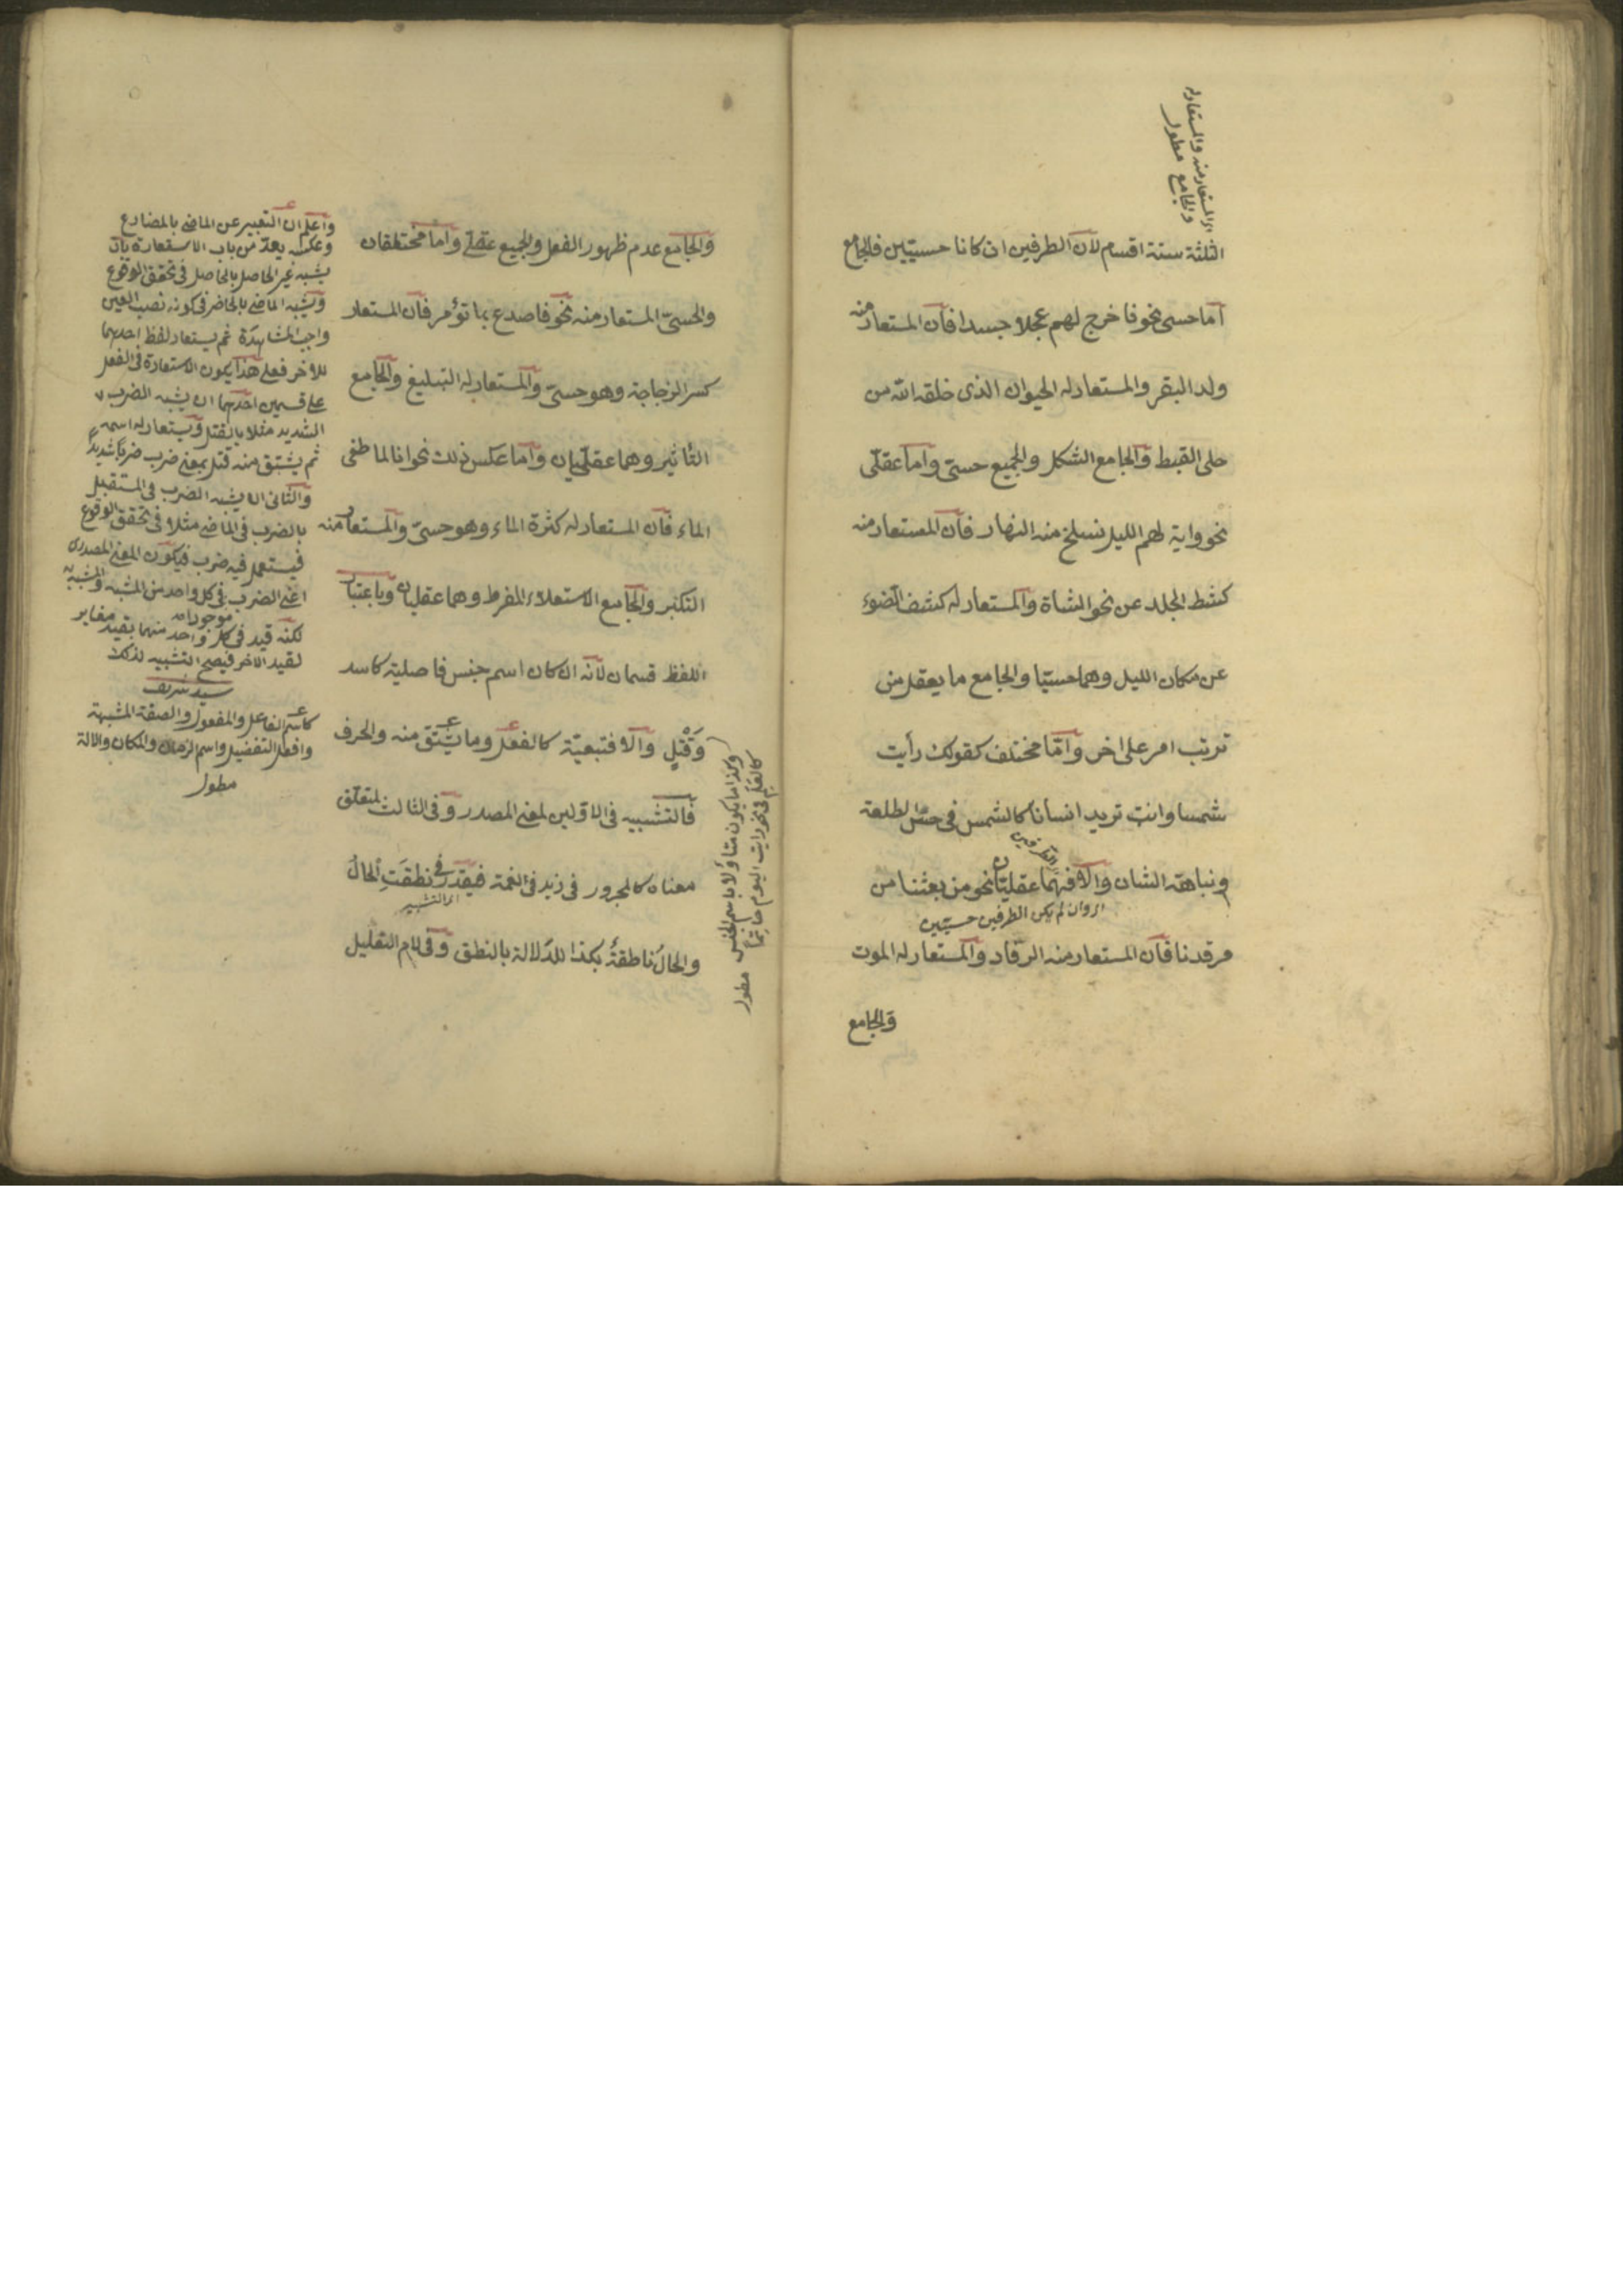 اى المستعار منه والمستعار له
والجامع مطول
الثلثة ستة اقسام لان الطرفين ان كانا حسيين فالجامع
اما حسى نحو فاخرج لهم عجلا جسدا فان المستعار منه
ولد البقر والمستعار له الحيوان الذى خلقه الله من
حلى القبط والجامع الشكل والجميع حسىّ واما عقلّى
نحو واية لهم الليل نسلخ منه النهار فان المستعار منه
كشط الجلد عن نحو الشاة والمستعار له كشف الضوء
عن مكان الليل وهما حسيّا والجامع ما يعقل من
ترتب امر على اخر وامّا مختلف كقولك رأيت
شمسا وانت تريد انسانا كالشمس فى حسن الطلعة
ونباهة الشان والا فهما عقليّان نحو من بعثنا من
الطرفين
اى وان لم يكن الطرفين حسيّين
مرقدنا فان المستعار منه الرقاد والمستعار له الموت
والجامع
والجامع عدم ظهور الفعل والجميع عقلى واما مختلفان
والحسىّ المستعار منه نحو فاصدع بما تؤمر فان المستعار
كسر الزجاجة وهو حسىّ والمستعار له التبليغ والجامع
التأثير وهما عقلّيان واما عكس ذلك نحو انا لما طغى
الماء فان المستعار له كثرة الماء وهو حسىّ والمستعار منه
التكبر والجامع الاستعلاء المفرط وهما عقليان وباعتبار
اللفظ قسمان لانه ان كان اسم جنس فاصلية كاسد
وَقَتْلٍ والّا فتبعيّة كالفعل وما يشتق منه والحرف
فالتشبيه فى الاولين لمعنى المصدر وفى الثالث لمتعلق
معناه كالمجرور فى زيد فى نعمة فيقدّر فى نطقَتِ الحالُ
اى التشبيه
والحالُ ناطقةٌ بكذا للدلالة بالنطق وفى لام التعليل
وكذا ما يكون متأولا باسم الجنس
كالعلم فى نحو رأيت اليوم حاتماً
مطول
واعلم ان التعبير عن الماضى بالمضارع
وعكسه يعدّ من باب الاستعارة بان
يشبه غير الحاصل بالحاصل فى تحقق الوقوع
ويشبه الماضى بالحاضر فى كونه نصب العين
واجب المشاهدة ثم يستعار لفظ احدهما
للاخر فعلى هذا يكون الاستعارة فى الفعل
على قسمين احدهما ان يشبه الضرب
الشديد مثلا بالقتل ويستعار له اسمه
ثم يشتق منه قتل بمعنى ضرب ضربا شديدا
والثانى ان يشبه الضرب فى المستقبل
بالضرب فى الماضى مثلا فى تحقق الوقوع
فيستعمل فيه ضرب فيكون المعنى المصدرى
اعنى الضرب فى كل واحد من المشبه والمشبه به
موجودا
لكنه قيد فى كل واحد منهما بقيد مغاير
لقيد الاخر فيصح التشبيه لذلك
سيد شريف
كاسم الفاعل والمفعول والصفة المشبهة
وافعل التفضيل واسم الزمان والمكان والالة
مطول